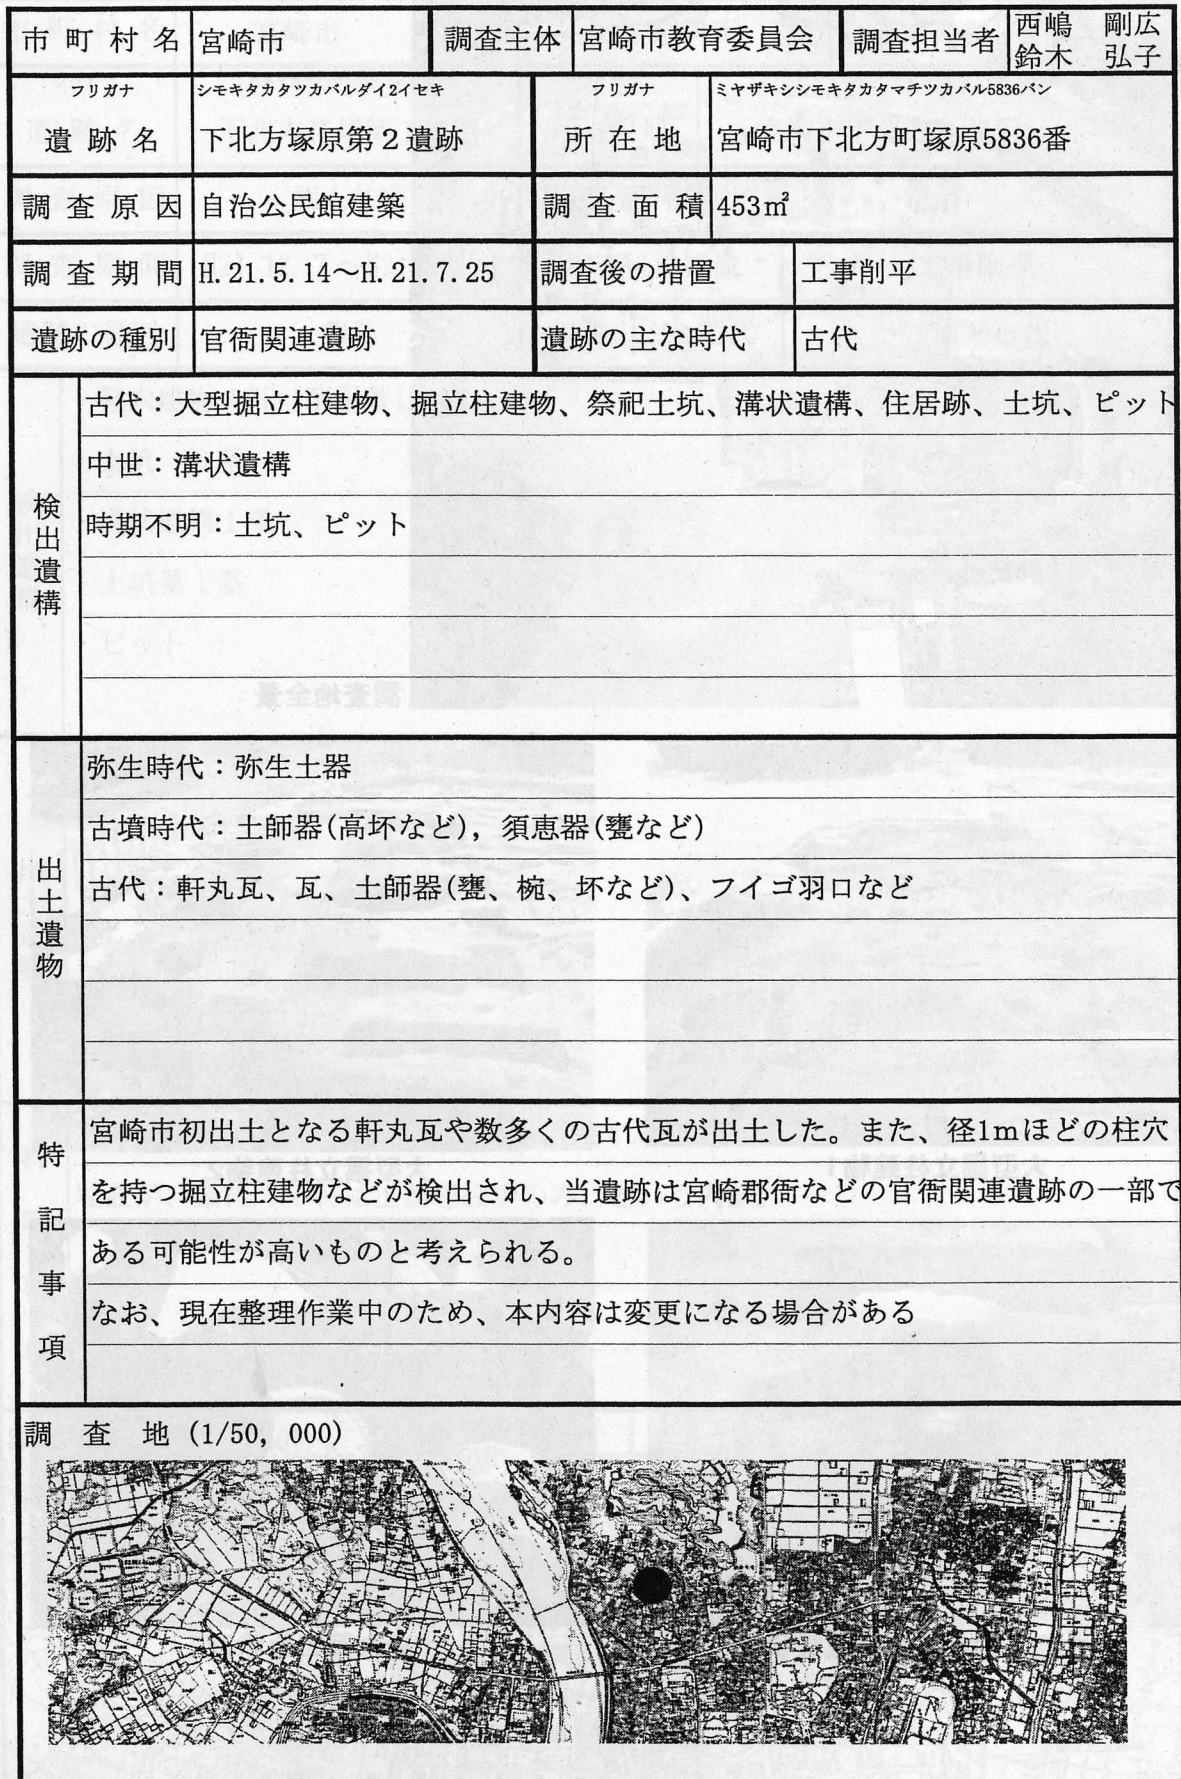 市町村名 宮崎市 調査主体 宮崎市教育委員会 調査担当者 西嶋 剛広
鈴木 弘子
フリガナ シモキタカタツカバルダイ2イセキ フリガナ ミヤザキシシモキタカタマチツカバル5836バン
遺跡名 下北方塚原第2遺跡 所在地 宮崎市下北方町塚原5836番
調査原因 自治公民館建築 調査面積 453㎡
調査期間 H.21.5.14～H.21.7.25 調査後の措置 工事削平
遺跡の種別 官衙関連遺跡 遺跡の主な時代 古代
検出遺構
古代：大型掘立柱建物、掘立柱建物、祭祀土坑、溝状遺構、住居跡、土坑、ピット
中世：溝状遺構
時期不明：土坑、ピット
出土遺物
弥生時代：弥生土器
古墳時代：土師器(高坏など)，須恵器(甕など)
古代：軒丸瓦、瓦、土師器(甕、椀、坏など)、フイゴ羽口など
特記事項
宮崎市初出土となる軒丸瓦や数多くの古代瓦が出土した。また、径1mほどの柱穴
を持つ掘立柱建物などが検出され、当遺跡は宮崎郡衙などの官衙関連遺跡の一部で
ある可能性が高いものと考えられる。
なお、現在整理作業中のため、本内容は変更になる場合がある
調 査 地 (1/50, 000)